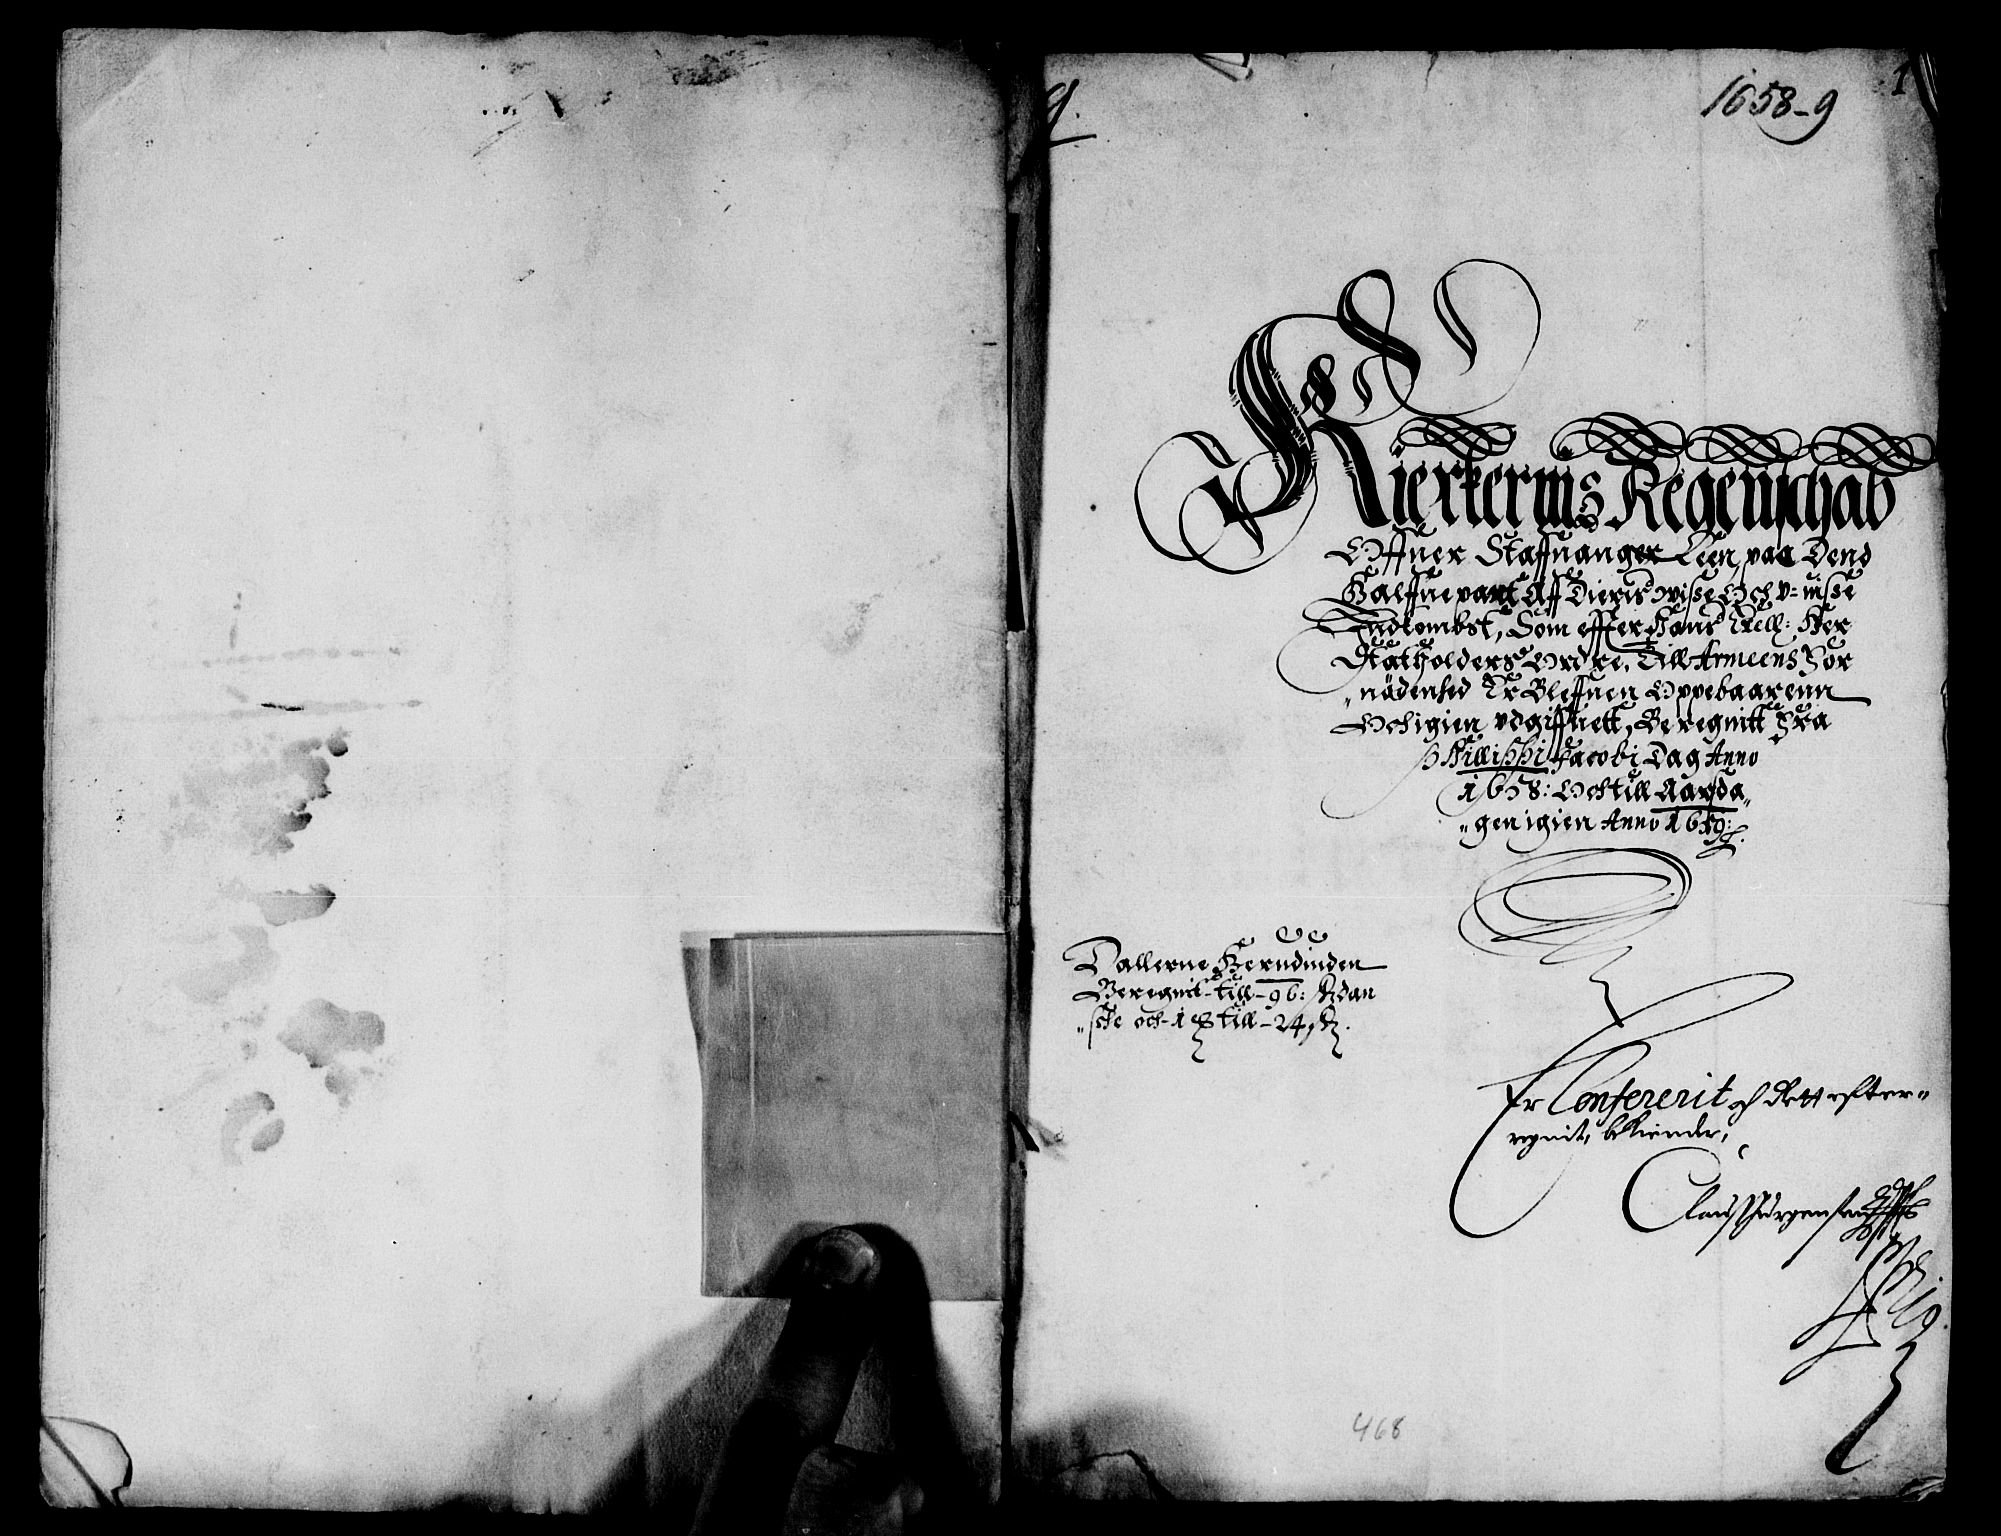 1
1658-9
9.
Kierkernis Regenschab
Offuer Staffuanger Leen, paa Dend
Halffuepart Aff Dieris wisse Och v-wisse
Indkombst, Som effter Hans Excell: Her
Statholders Ordre, Till Armeens For
„nødenhed Er Bleffuen Oppebaarenn
Och igien vdgiffuett, Beregnitt Fra
Philippi Jacobi Dag Anno
1658: Och till Aarsda„
„gen igien Anno 1659:
Dallerne Herudinden
Beregnit till 96: ß dan
„sche och 1 till 24 ß.
Er Confererit och Rett efter„
regnit, bekiender,
Clauss Jürgensen
468